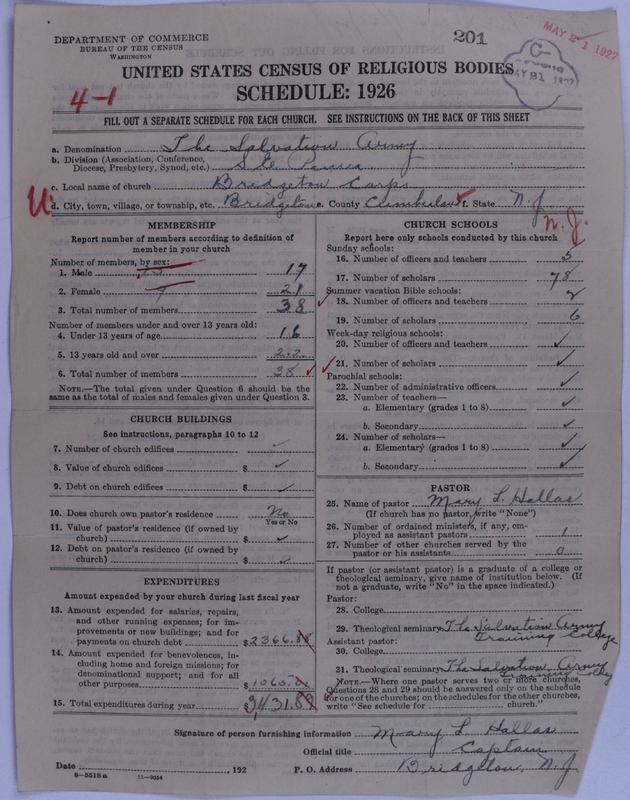 DEPARTMENT OF COMMERCE
BUREAU OF THE CENSUS
WASHINGTON
201
MAY 21 1927
UNITED STATES CENSUS OF RELIGIOUS BODIES
4-1
SCHEDULE: 1926
FILL OUT A SEPARATE SCHEDULE FOR EACH CHURCH. SEE INSTRUCTIONS ON THE BACK OF THIS SHEET
a. Denomination The Salvation Army
b. Division (Association, Conference, Diocese, Presbytery, Synod, etc.) S. E.
c. Local name of church Bridgeton Corps
U d. City, town, village, or township, etc. Bridgeton e. County Cumberland f. State N. J.
N. J.
MEMBERSHIP
Report number of members according to definition of
member in your church
Number of members, by sex:
1. Male 17
2. Female 21
3. Total number of members 38
Number of members under and over 13 years old:
4. Under 13 years of age 16
5. 13 years old and over 22
6. Total number of members 38
NOTE.—The total given under Question 6 should be the
same as the total of males and females given under Question 3.
CHURCH BUILDINGS
See instructions, paragraphs 10 to 12
7. Number of church edifices ✓
8. Value of church edifices $ ✓
9. Debt on church edifices $ ✓
10. Does church own pastor's residence No
Yes or No
11. Value of pastor's residence (if owned by
church) $ ✓
12. Debt on pastor's residence (if owned by
church) $ ✓
EXPENDITURES
Amount expended by your church during last fiscal year
13. Amount expended for salaries, repairs,
and other running expenses; for im-
provements or new buildings; and for
payments on church debt $2366.88
14. Amount expended for benevolences, in-
cluding home and foreign missions; for
denominational support; and for all
other purposes $1065.
15. Total expenditures during year $3431.88
CHURCH SCHOOLS
Report here only schools conducted by this church
Sunday schools:
16. Number of officers and teachers 5
17. Number of scholars 78
Summer vacation Bible schools:
18. Number of officers and teachers 2
19. Number of scholars 6
Week-day religious schools:
20. Number of officers and teachers ✓
21. Number of scholars ✓
Parochial schools:
22. Number of administrative officers ✓
23. Number of teachers—
a. Elementary (grades 1 to 8) ✓
b. Secondary ✓
24. Number of scholars—
a. Elementary (grades 1 to 8) ✓
b. Secondary ✓
PASTOR
25. Name of pastor Mary L. Hallas
(If church has no pastor, write "None")
26. Number of ordained ministers, if any, em-
ployed as assistant pastors 1
27. Number of other churches served by the
pastor or his assistants 0
If pastor (or assistant pastor) is a graduate of a college or
theological seminary, give name of institution below. (If
not a graduate, write "No" in the space indicated.)
Pastor:
28. College
29. Theological seminary The Salvation Army
Training College
Assistant pastor:
30. College
31. Theological seminary The Salvation Army
Training College
NOTE.—Where one pastor serves two or more churches,
Questions 28 and 29 should be answered only on the schedule
for one of the churches; on the schedules for the other churches,
write "See schedule for church."
Signature of person furnishing information Mary L Hallas
Official title Captain
Date , 192 P. O. Address Bridgeton, N. J
8—5518 a 11—9054